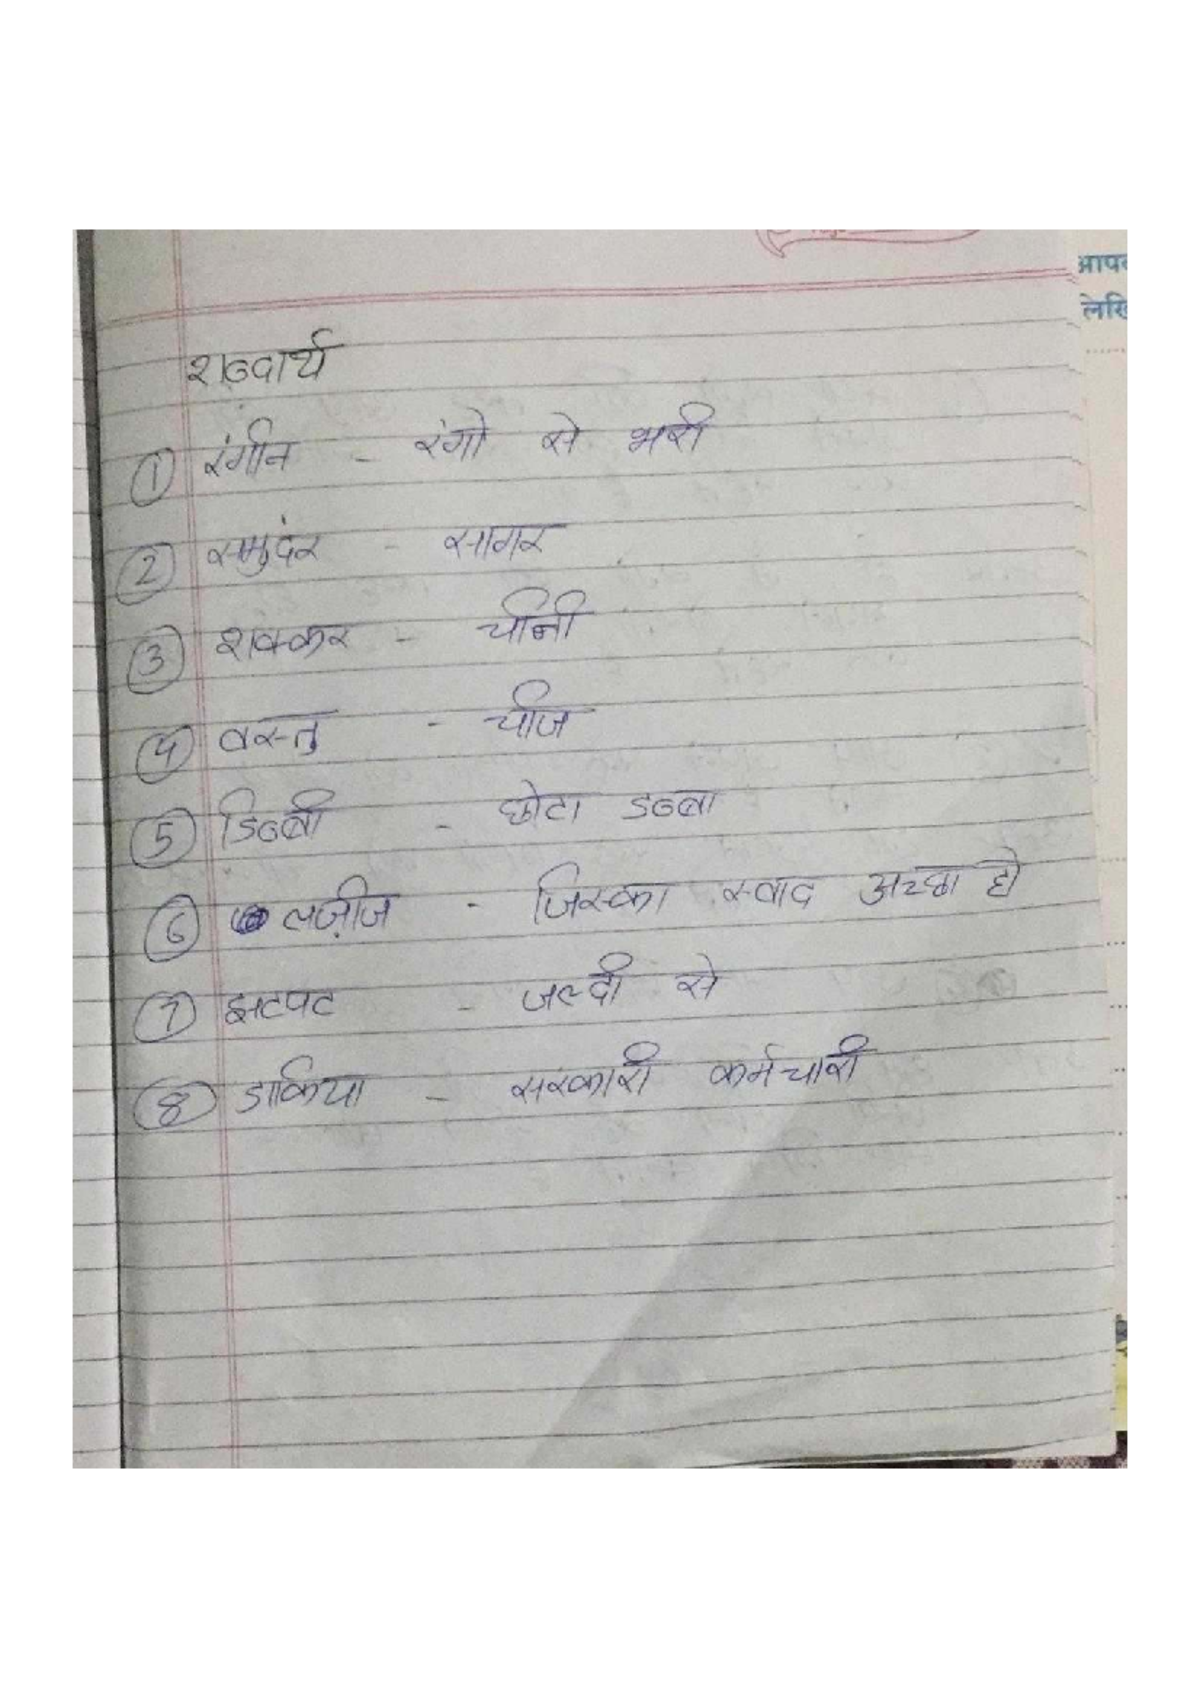 शब्दार्थ
① रंगीन - रंगो से भरी
② समुदंर - सागर
③ शक्कर - चीनी
④ वस्तु - चीज
⑤ डिब्बी - छोटा डब्बा
⑥ लज़ीज - जिस्का स्वाद अच्छा हो
⑦ झटपट - जल्दी से
⑧ डाकिया - सरकारी कर्मचारी